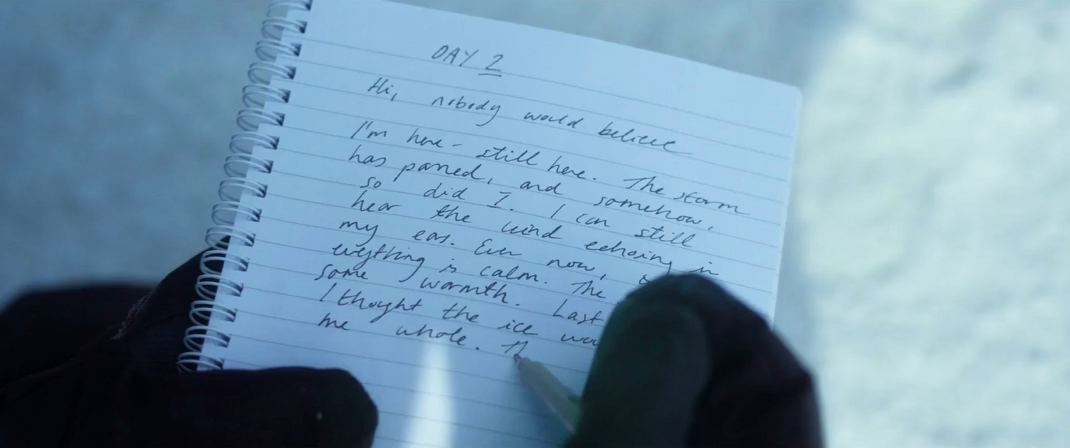 DAY 2
Hi, nobody would believe
I'm here - still here. The storm
has passed, and somehow,
so did I. I can still
hear the wind echoing in
my ear. Even now,
everything is calm. The
some warmth. Last
I thought the ice
me whole.